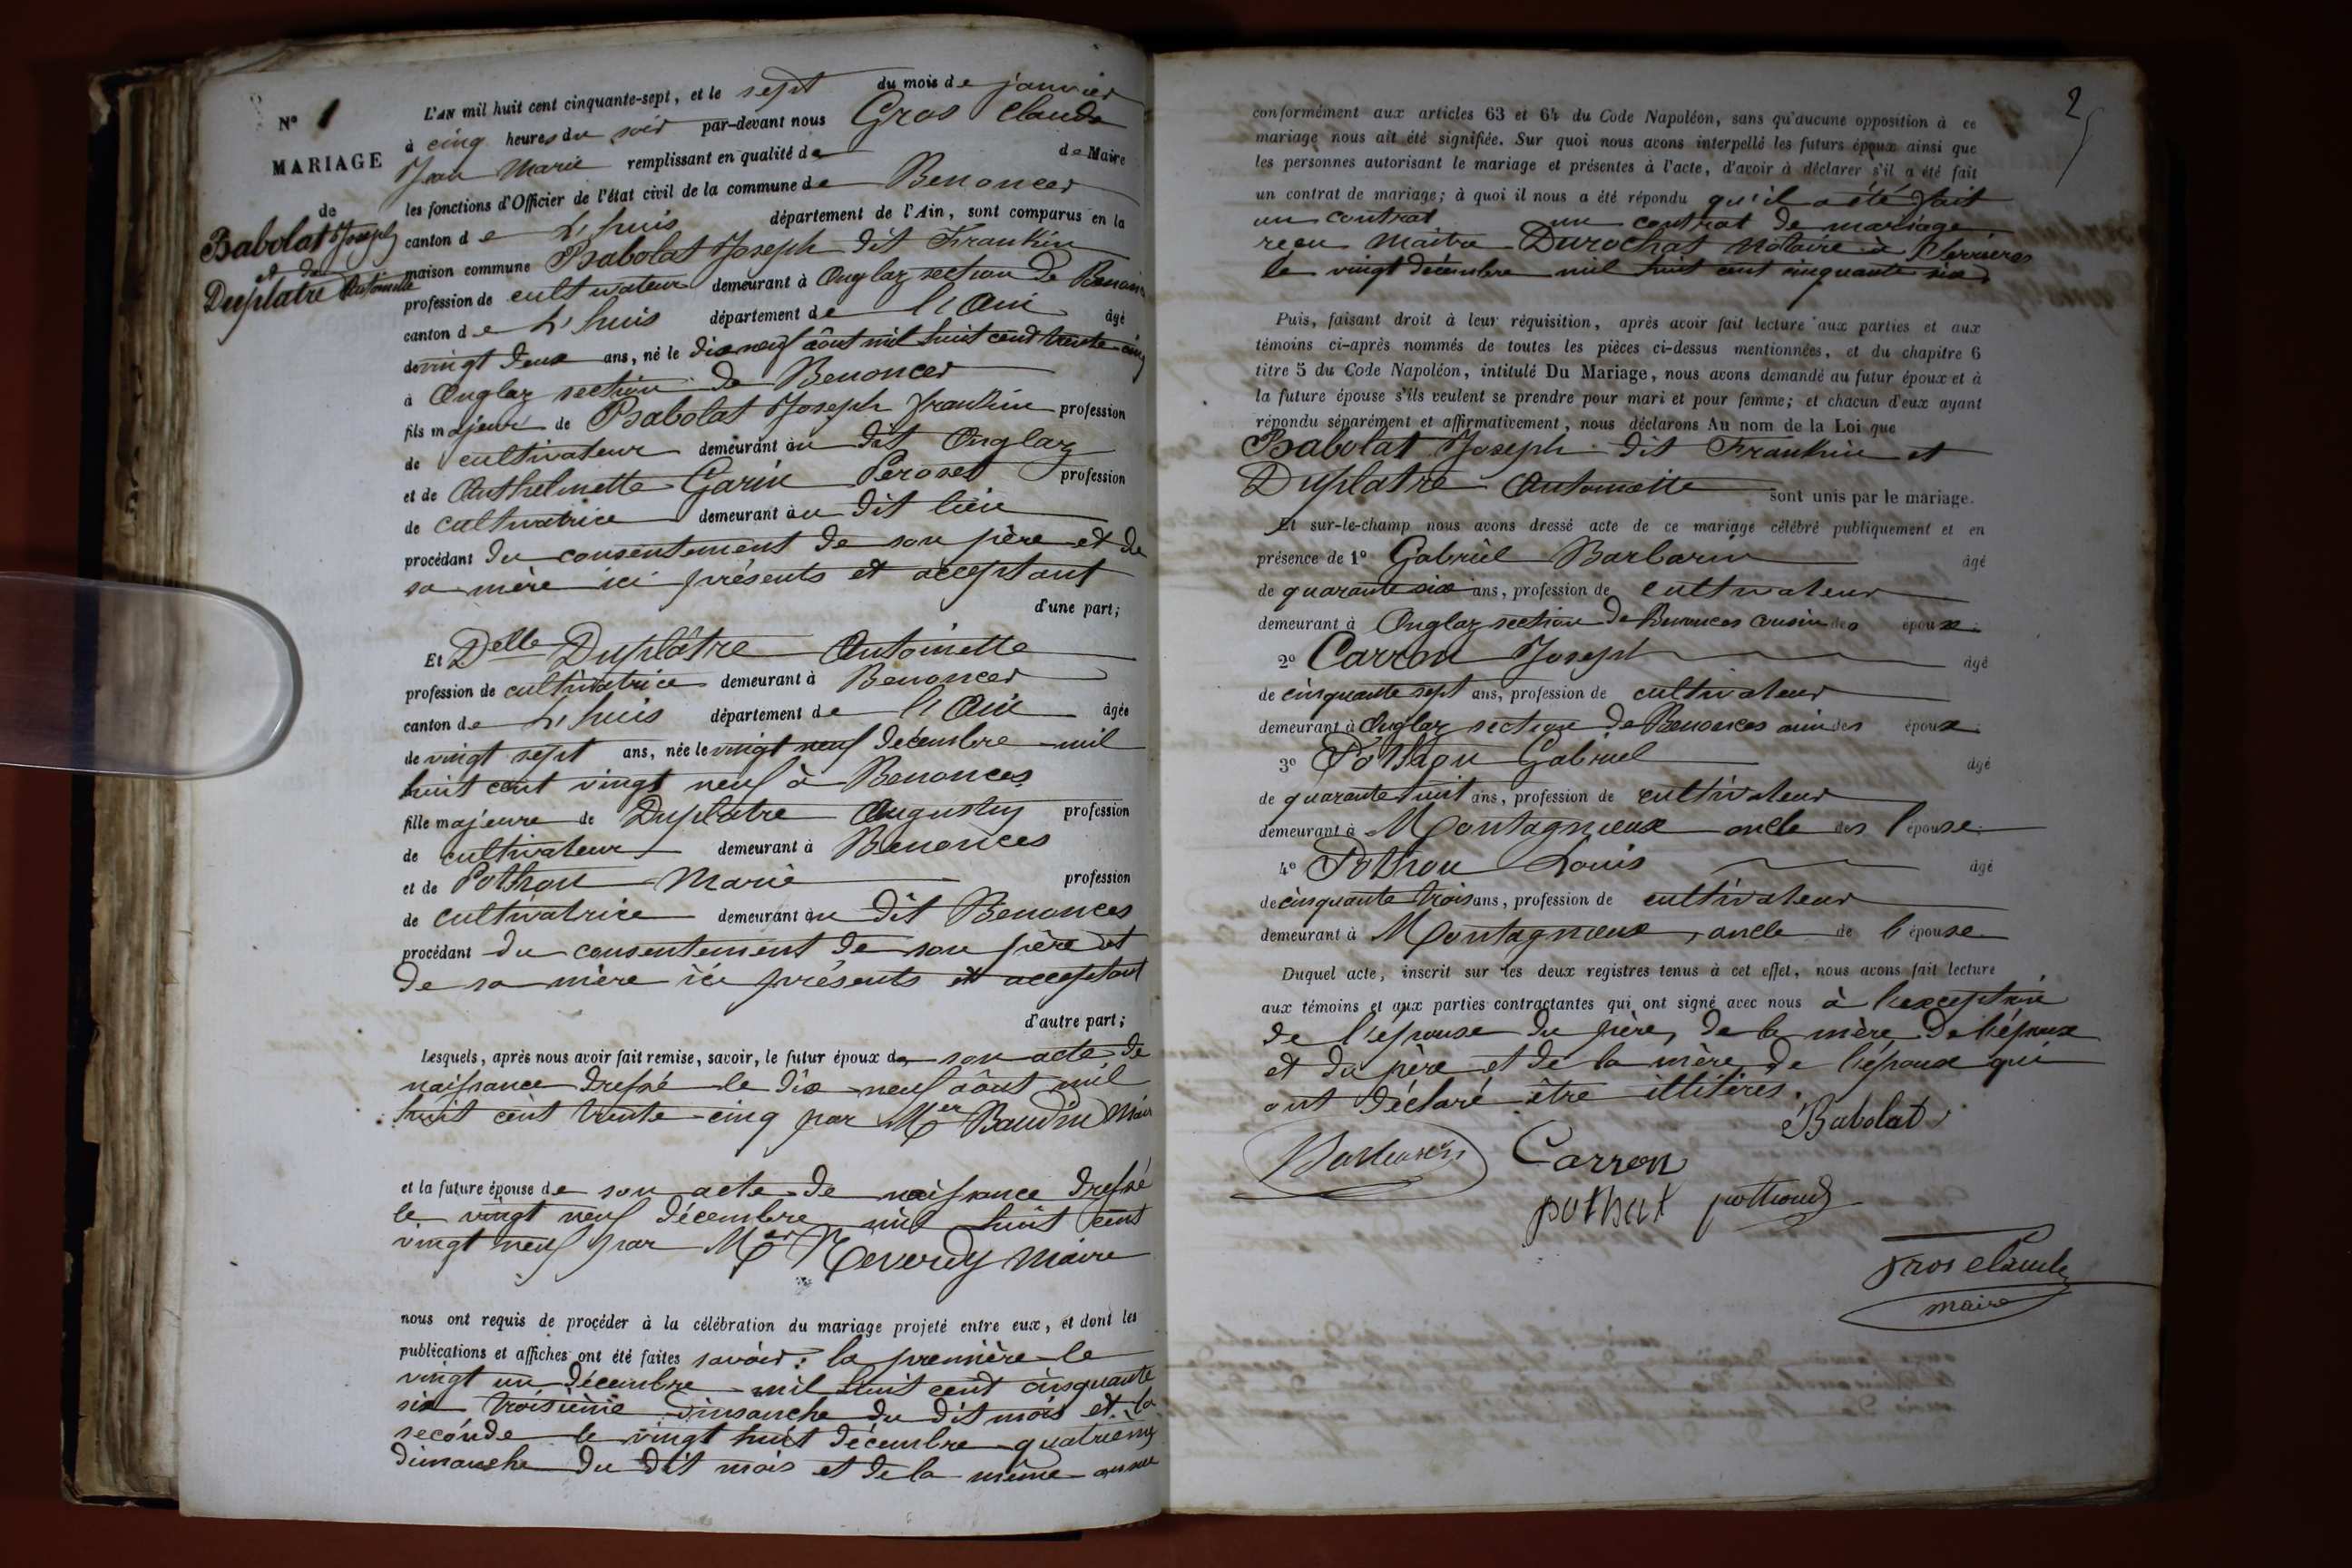 N° 1
MARIAGE
de
Babolat Joseph
et de
Duplatre Antoinette
L'AN mil huit cent cinquante-sept, et le sept du mois de janvier
à cinq heures du soir par-devant nous Gros Claude
Jean Marie remplissant en qualité de de Maire
les fonctions d'Officier de l'état civil de la commune de Benonces
canton de L'huis département de l'Ain, sont comparus en la
maison commune Babolat Joseph dit Frankin
profession de cultivateur demeurant à Onglaz section de Benonces
canton de L'huis département de l'Ain âgé
de vingt deux ans, né le dix neuf août mil huit cent trente-cinq
à Onglaz section de Benonces
fils majeur de Babolat Joseph Frankin profession
de cultivateur demeurant au dit Onglaz
et de Anthelmette Garin Peroset profession
de cultivatrice demeurant au dit lieu
procédant du consentement de son père et de
sa mère ici présents et acceptant
d'une part;
Et Delle Duplâtre Antoinette
profession de cultivatrice demeurant à Benonces
canton de L'huis département de l'Ain âgée
de vingt sept ans, née le vingt neuf décembre mil
huit cent vingt neuf à Benonces
fille majeure de Duplatre Augustin profession
de cultivateur demeurant à Benonces
et de Pothon Marie profession
de cultivatrice demeurant au dit Benonces
procédant du consentement de son père et
de sa mère ici présents et acceptant
d'autre part;
Lesquels, après nous avoir fait remise, savoir, le futur époux de son acte de
naissance dressé le dix neuf août mil
huit cent trente-cinq par Mer Baudin Maire
et la future épouse de son acte de naissance dressé
le vingt neuf décembre mil huit cent
vingt neuf par Mer Reverdy Maire
nous ont requis de procéder à la célébration du mariage projeté entre eux, et dont les
publications et affiches ont été faites savoir : la première le
vingt un décembre mil huit cent cinquante
six troisième dimanche du dit mois et la
seconde le vingt huit décembre quatrième
dimanche du dit mois et de la même année
2
conformément aux articles 63 et 64 du Code Napoléon, sans qu'aucune opposition à ce
mariage nous ait été signifiée. Sur quoi nous avons interpellé les futurs époux ainsi que
les personnes autorisant le mariage et présentes à l'acte, d'avoir à déclarer s'il a été fait
un contrat de mariage; à quoi il nous a été répondu qu'il a été fait
un contrat un contrat de mariage
reçu Maitre Durochat Notaire à Serrières
le vingt décembre mil huit cent cinquante six
Puis, faisant droit à leur réquisition, après avoir fait lecture aux parties et aux
témoins ci-après nommés de toutes les pièces ci-dessus mentionnées, et du chapitre 6
titre 5 du Code Napoléon, intitulé Du Mariage, nous avons demandé au futur époux et à
la future épouse s'ils veulent se prendre pour mari et pour femme; et chacun d'eux ayant
répondu séparément et affirmativement, nous déclarons Au nom de la Loi que
Babolat Joseph dit Frankin et
Duplatre Antoinette sont unis par le mariage.
Et sur-le-champ nous avons dressé acte de ce mariage célébré publiquement et en
présence de 1° Gabriel Barbarin âgé
de quarante six ans, profession de cultivateur
demeurant à Onglaz section de Benonces cousin des époux.
2° Carron Joseph âgé
de cinquante sept ans, profession de cultivateur
demeurant à Onglaz section de Benonces ami des époux.
3° Pothon Gabriel âgé
de quarante huit ans, profession de cultivateur
demeurant à Montagnieux oncle des l'épouse.
4° Pothon Louis âgé
de cinquante trois ans, profession de cultivateur
demeurant à Montagnieux, oncle de l'épouse
Duquel acte, inscrit sur les deux registres tenus à cet effet, nous avons fait lecture
aux témoins et aux parties contractantes qui ont signé avec nous à l'exception
de l'épouse du père, de la mère de l'époux
et du père et de la mère de l'épouse qui
ont déclaré être illitérés.
Babolat
Barbarin Carron
Gros Claude
maire